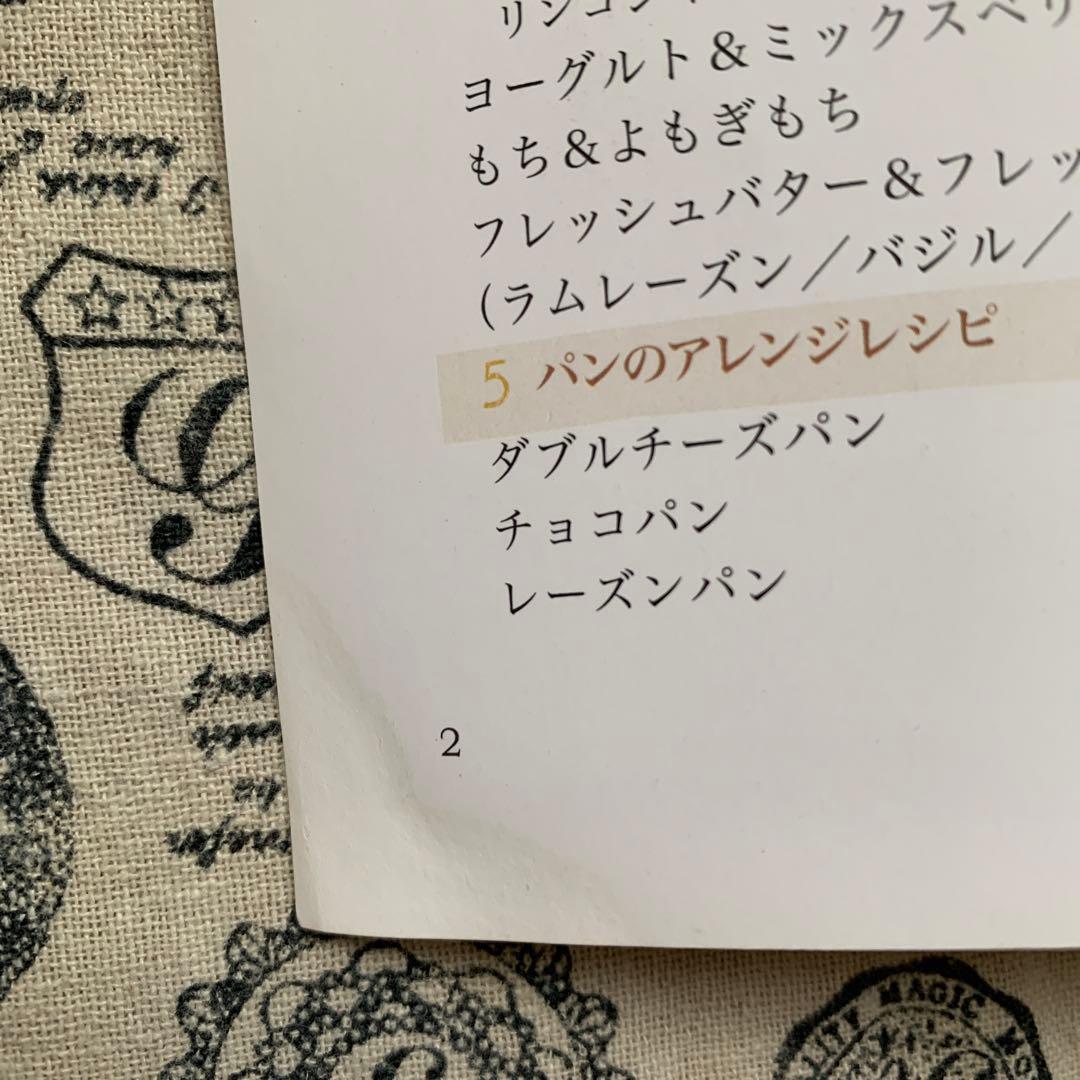 リンゴジャ
ヨーグルト&ミックスベリ
もち&よもぎもち
フレッシュバター&フレッ
(ラムレーズン／バジル／
5 パンのアレンジレシピ
ダブルチーズパン
チョコパン
レーズンパン
2
I think
have a
MAGIC